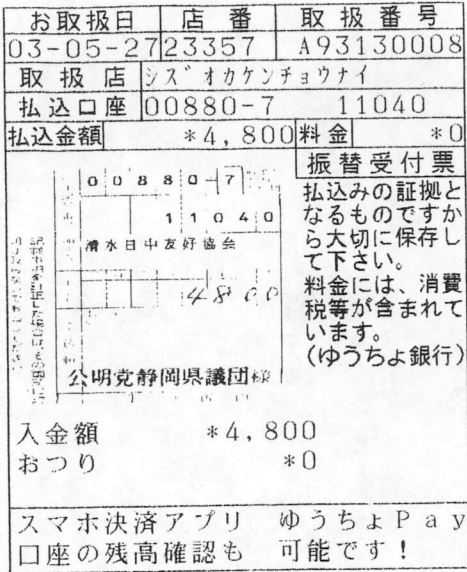 お取扱日 店番 取扱番号
03-05-27 23357 A93130008
取扱店 シズオカケンチョウナイ
払込口座 00880-7 11040
払込金額 *4,800 料金 *0
振替受付票
払込みの証拠と
なるものですか
ら大切に保存し
て下さい。
料金には、消費
税等が含まれて
います。
(ゆうちょ銀行)
00880-7
11040
清水日中友好協会
4800
公明党静岡県議団様
入金額 *4,800
おつり *0
スマホ決済アプリ ゆうちょPay
口座の残高確認も 可能です!